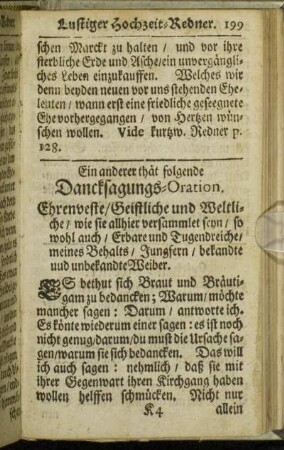 Lustiger Hochzeit-Redner. 199
schen Marckt zu halten / und vor ihre
sterbliche Erde und Asche / ein unvergängli-
ches Leben einzukauffen. Welches wir
denn beyden neuen vor uns stehenden Ehe-
leuten / wann erst eine friedliche geseegnete
Ehe vorhergegangen / von Hertzen wün-
schen wollen. Vide kurtzw. Redner p.
128.
Ein anderer thät folgende
Dancksagungs-Oration.
Ehrenveste / Geistliche und Weltli-
che / wie sie allhier versammlet seyn / so
wohl auch / Erbare und Tugendreiche /
meines Behalts / Jungfern / bekandte
uud unbekandte Weiber.
ES bethut sich Braut und Bräuti-
gam zu bedancken; Warum / möchte
mancher sagen: Darum / antworte ich.
Es könte wiederum einer sagen: es ist noch
nicht genug / darum / du must die Ursache sa-
gen / warum sie sich bedancken. Das will
ich auch sagen: nehmlich / daß sie mit
ihrer Gegenwart ihren Kirchgang haben
wollen helffen schmücken. Nicht nur
K4 allein